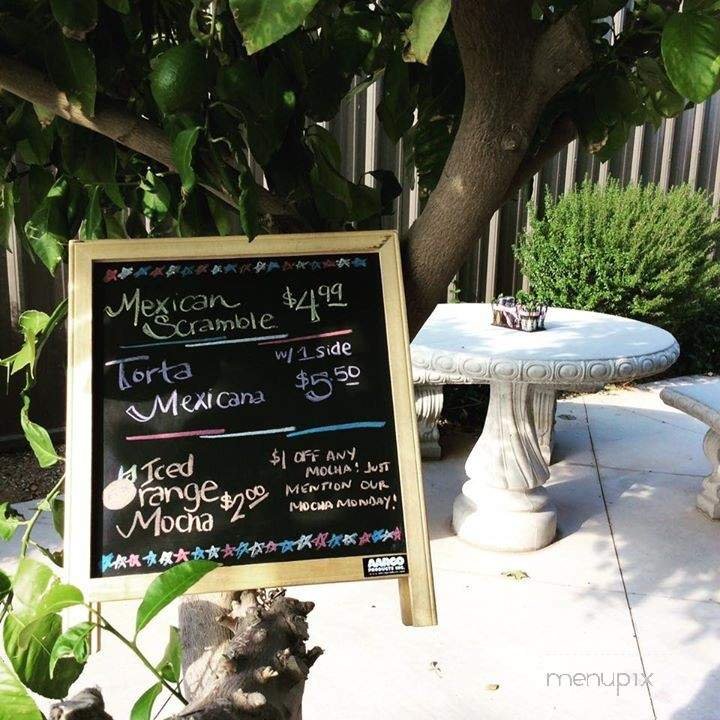 Mexican $4.99
Scramble
Torta w/ 1 side
Mexicana $5.50
Iced
Orange $2.00
Mocha
$1 OFF ANY
MOCHA! JUST
MENTION OUR
MOCHA MONDAY!
AARCO
PRODUCTS INC.
menupix